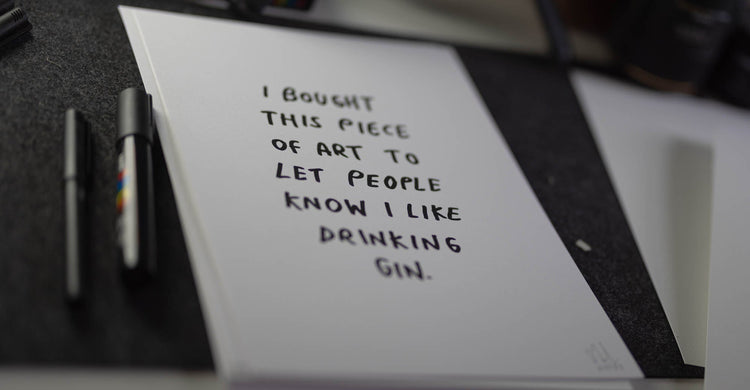 I BOUGHT
THIS PIECE
OF ART TO
LET PEOPLE
KNOW I LIKE
DRINKING
GIN.